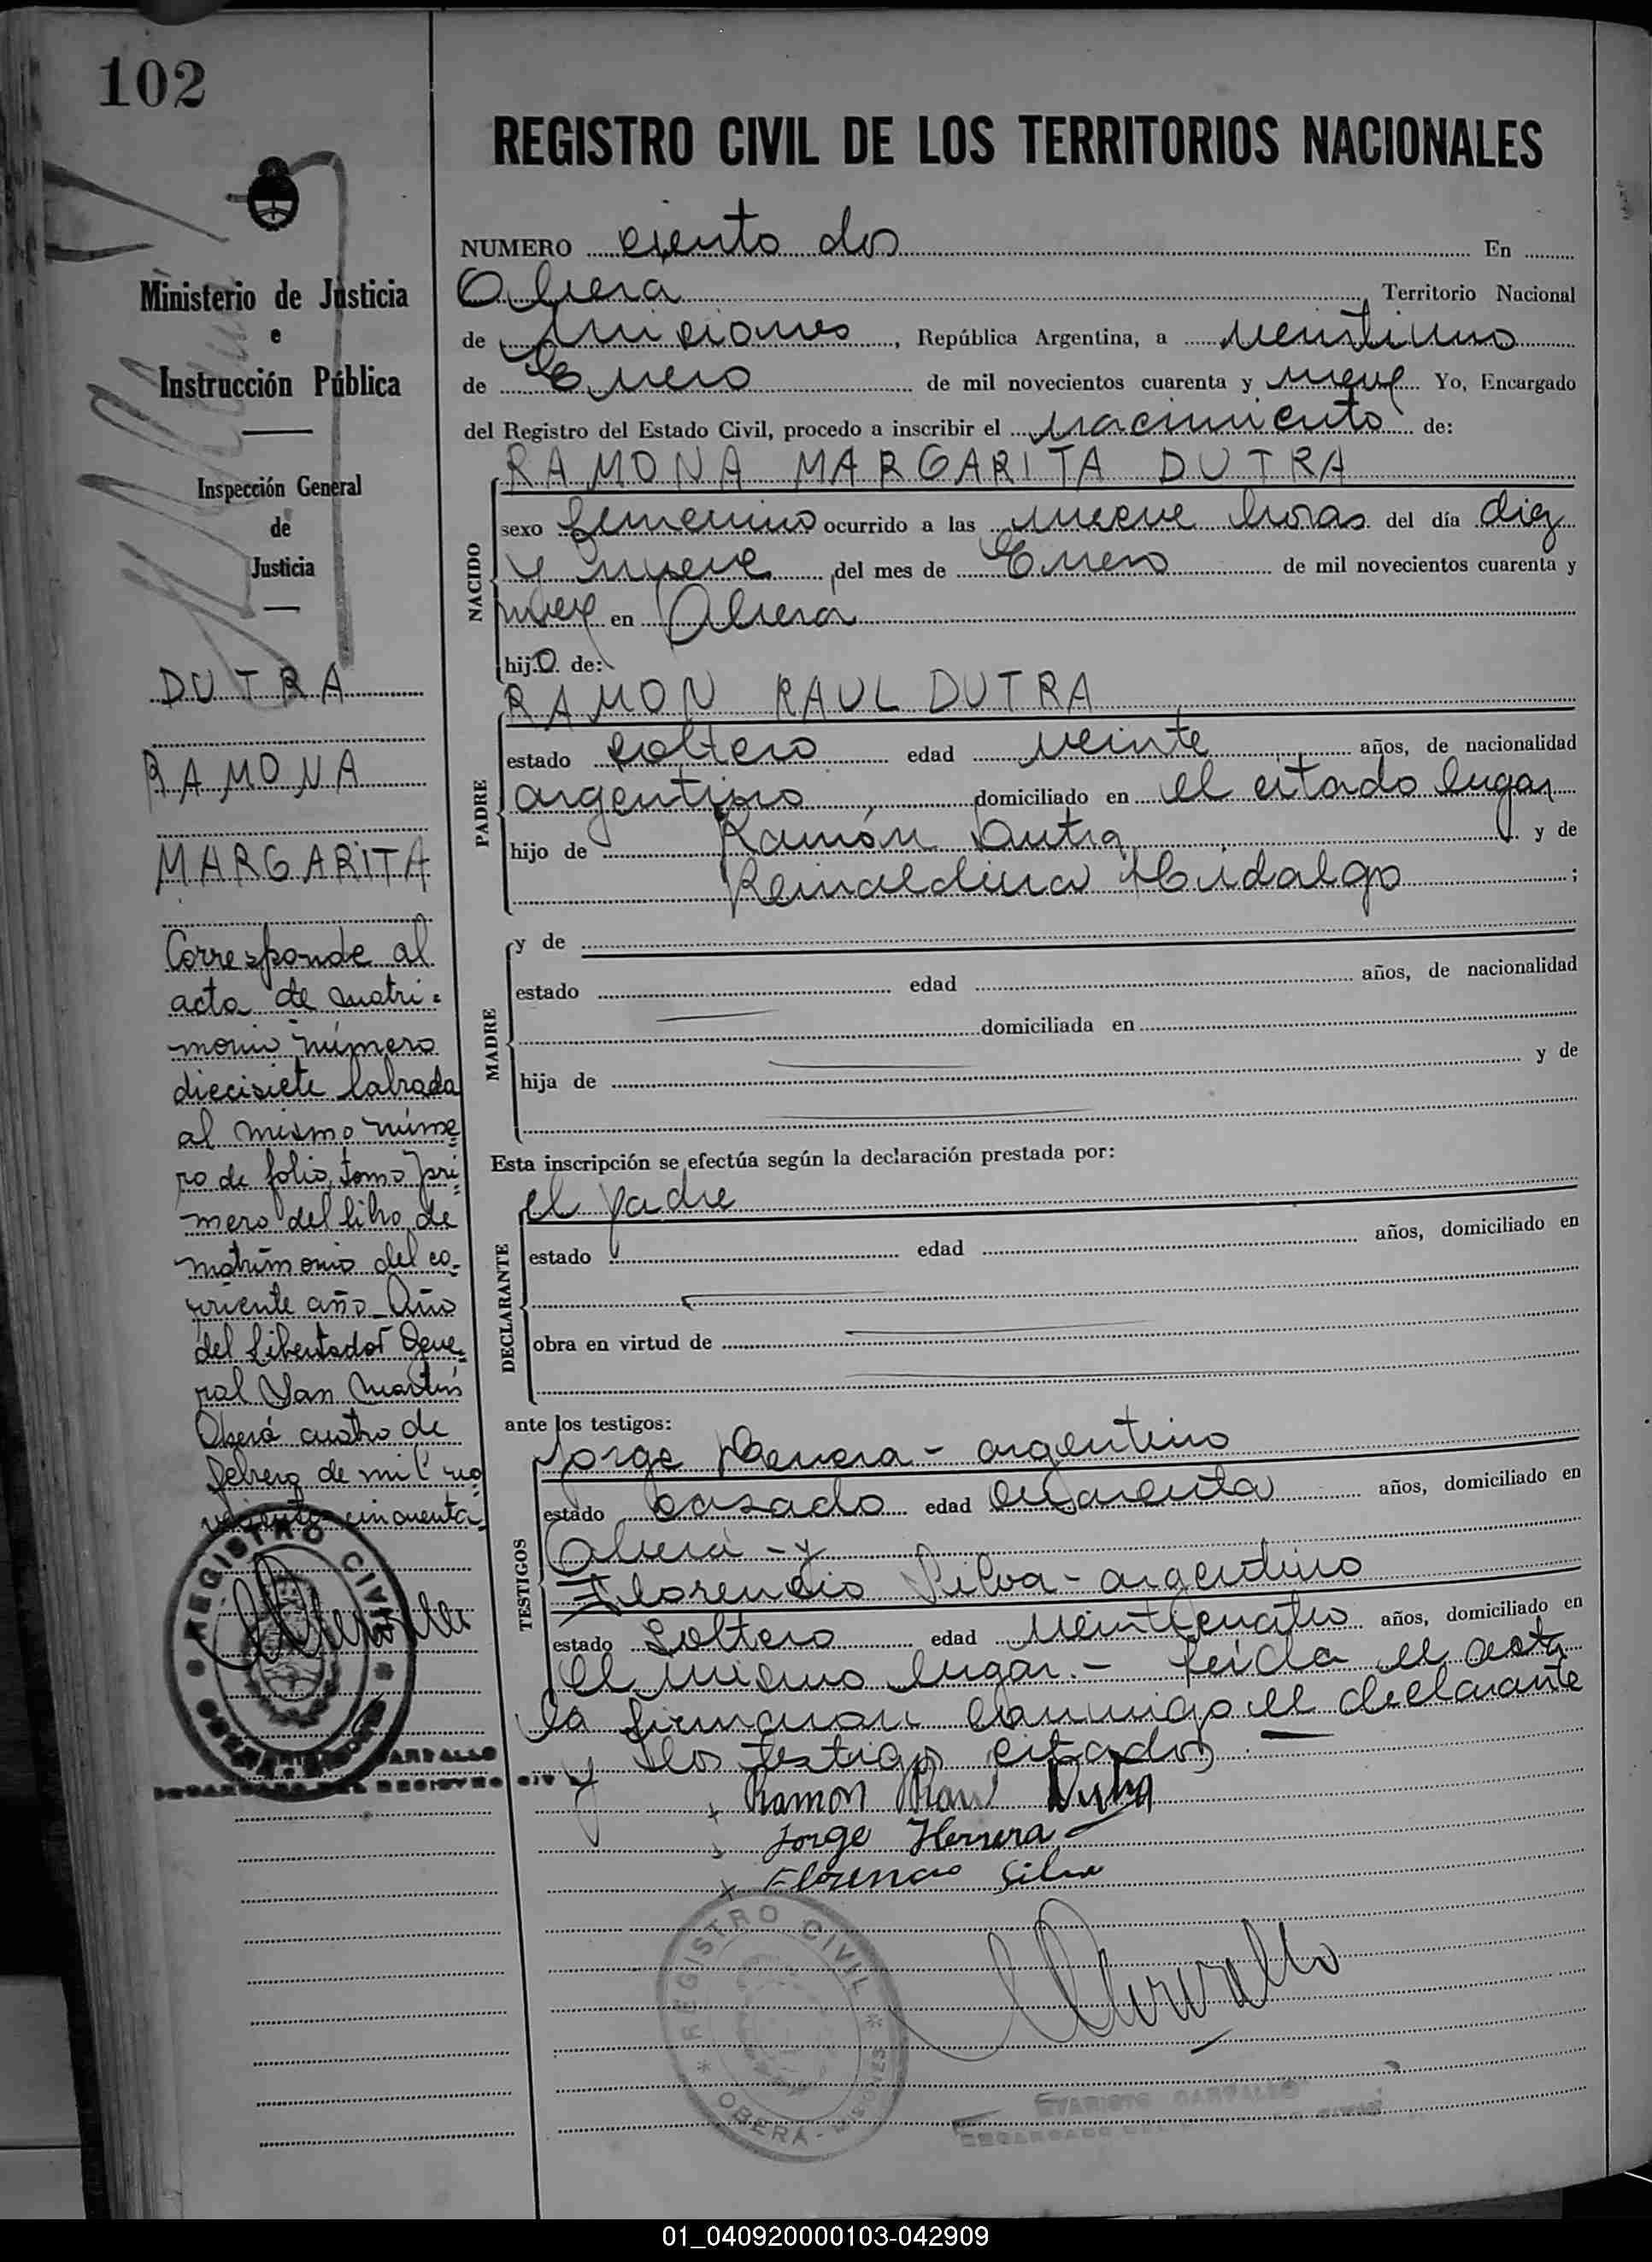 102
Ministerio de Justicia
e
Instrucción Pública
Inspección General
de
Justicia
DUTRA
RAMONA
MARGARITA
Corresponde al
acta de matri=
monio número
diecisiete labrada
al mismo núme
ro de folio, tomo pri
mero del libro de
matrimonio del co-
rriente año_Año
del Libertador Gene
ral San Martín
Oberá cuatro de
febrero de mil no
vecientos cincuenta.
REGISTRO CIVIL
REGISTRO CIVIL DE LOS TERRITORIOS NACIONALES
NUMERO ciento dos En
Obera, Territorio Nacional
de Misiones, República Argentina, a veintiuno
de Enero de mil novecientos cuarenta y nueve Yo, Encargado
del Registro del Estado Civil, procedo a inscribir el nacimiento de:
RAMONA MARGARITA DUTRA
NACIDO
sexo femenino ocurrido a las nueve horas del día diez
y nueve del mes de Enero de mil novecientos cuarenta y
nueve en Oberá
hijo de:
RAMON RAUL DUTRA
PADRE
estado soltero edad veinte años, de nacionalidad
argentino domiciliado en el citado lugar
hijo de Ramón Dutra y de
Reinaldina Hidalgo ;
MADRE
y de
estado edad años, de nacionalidad
domiciliada en
hija de y de
Esta inscripción se efectúa según la declaración prestada por:
el padre
DECLARANTE
estado edad años, domiciliado en
obra en virtud de
ante los testigos:
Jorge Herrera - argentino
TESTIGOS
estado casado edad cuarenta años, domiciliado en
Oberá - y
Florencio Silva - argentino
estado Soltero edad veinticuatro años, domiciliado en
el mismo lugar. - Leída el acta
la firmaron conmigo el declarante
y los testigos citados. —
Ramon Raul Dutra
Jorge Herrera
x Florencio Silva
REGISTRO CIVIL
* OBERA - MISIONES *
EVARISTO CARVALLO
ENCARGADO DEL
01_040920000103-042909